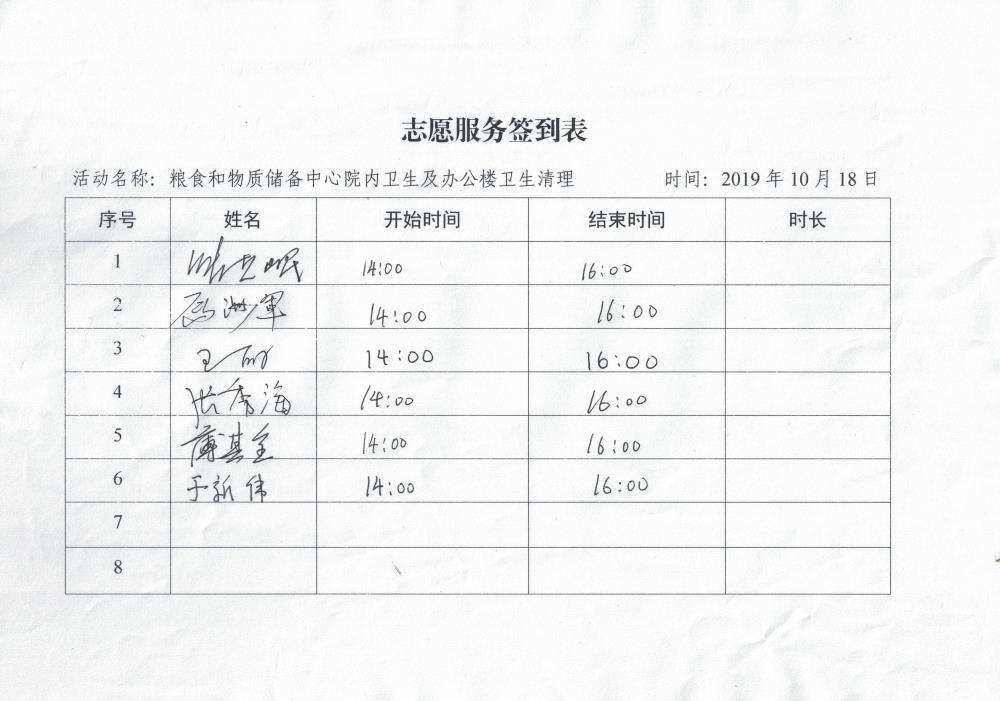 志愿服务签到表
活动名称：粮食和物质储备中心院内卫生及办公楼卫生清理 时间：2019年10月18日
序号 姓名 开始时间 结束时间 时长
1 14:00 16:00
2 14:00 16:00
3 王 14:00 16:00
4 张秀海 14:00 16:00
5 蒲基全 14:00 16:00
6 于新伟 14:00 16:00
7
8